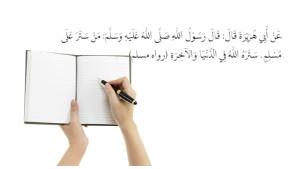 عَنْ أَبِي هُرَيْرَةَ قَالَ: قَالَ رَسُوْلُ اللهِ صَلَّى اللهُ عَلَيْهِ وَسَلَّمَ: مَنْ سَتَرَ عَلَى
مُسْلِمٍ، سَتَرَهُ اللهُ فِي الدُّنْيَا وَالآخِرَةِ (رواه مسلم)